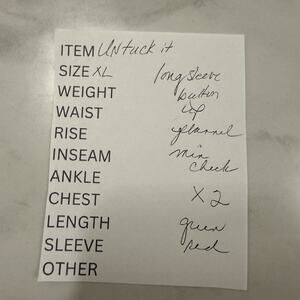 ITEM Untuck it
SIZE XL long sleeve
WEIGHT button
WAIST up
RISE flannel
INSEAM min
ANKLE check
CHEST X 2
LENGTH green
SLEEVE red
OTHER